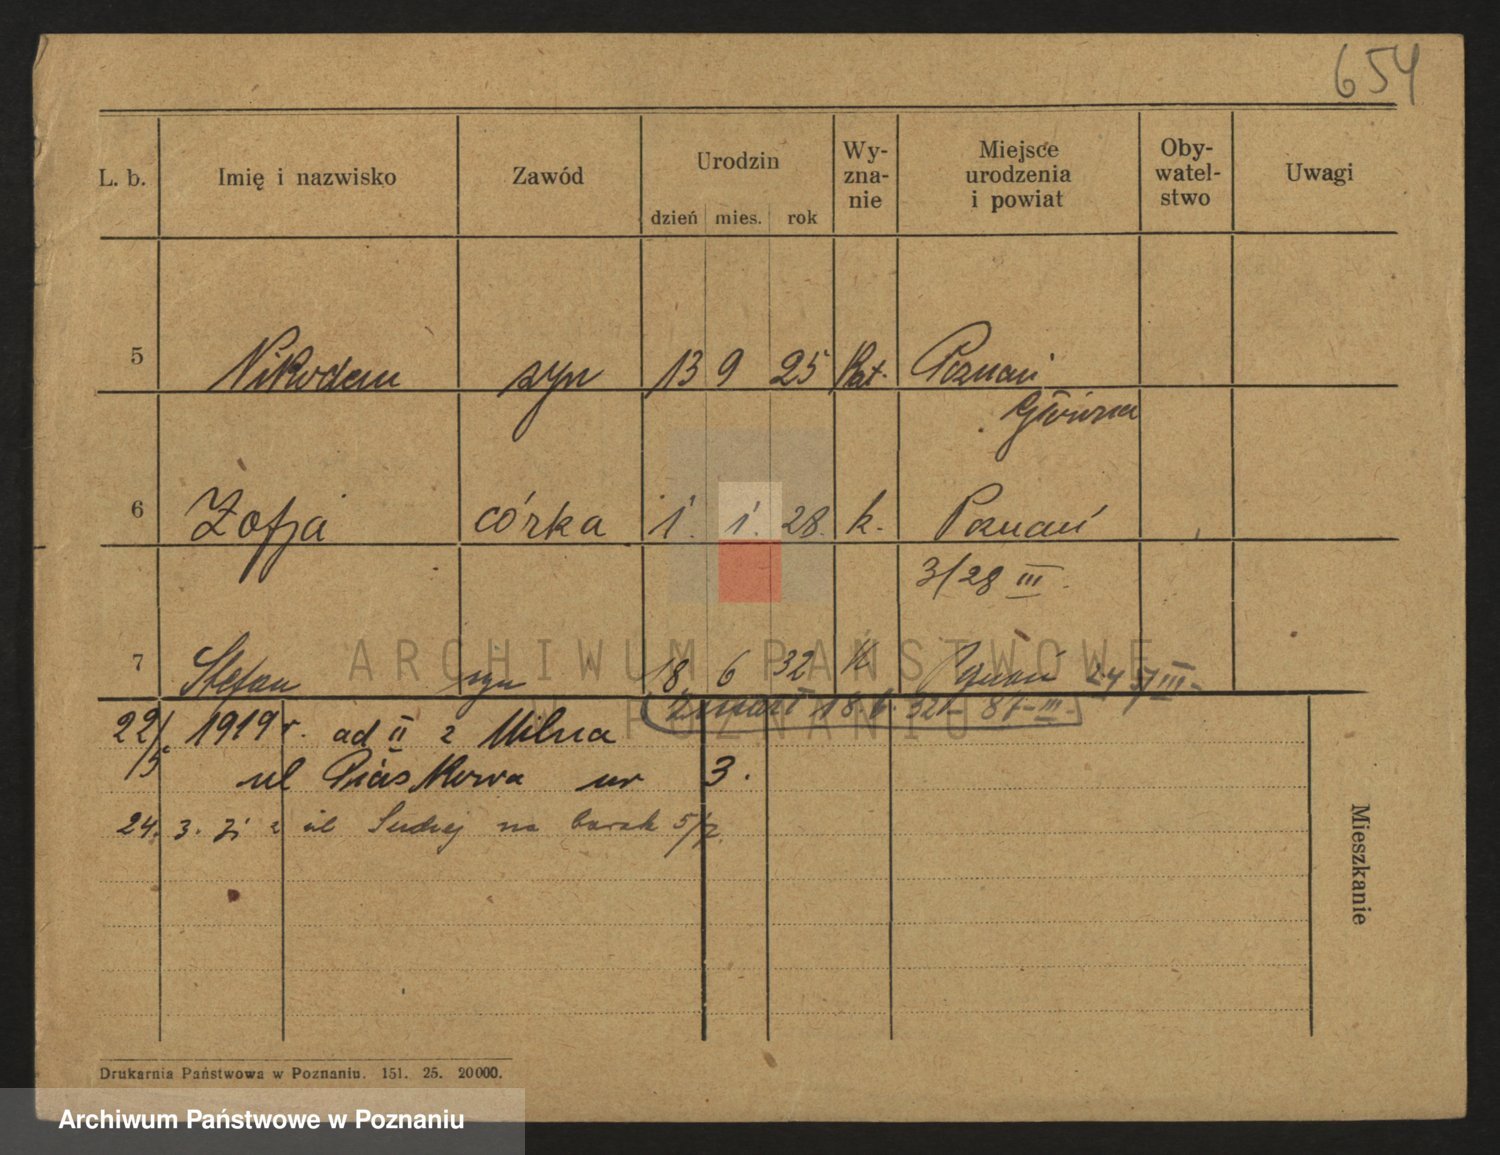 654
L. b. Imię i nazwisko Zawód Urodzin dzień mies. rok Wy- zna- nie Miejsce urodzenia i powiat Oby- watel- stwo Uwagi
5 Nikodem syn 13 9 25 Kat. Poznań
Główna
6 Zofja córka 1. 1. 28. k. Poznań
3/28 III.
7 Stefan syn 18 6 32 k 
zmarł 18. 6. 32 87-III-
22/5. 1919 r. ad II z Milna
ul Piaskowa nr 3.
24. 3. z ul na barak 5/7.
Mieszkanie
Drukarnia Państwowa w Poznaniu. 151. 25. 20000.
ARCHIWUM PAŃSTWOWE
W POZNANIU
Archiwum Państwowe w Poznaniu